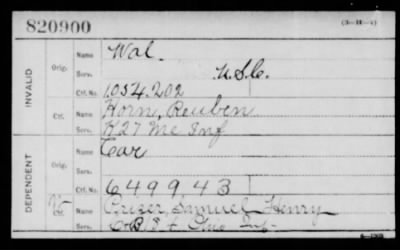 820900
(3-11-4)
INVALID
Orig.
Name Wal.
Serv. U.S.C.
Ctf. No. 1.054.202
Ctf.
Name Horn, Reuben
Serv. K 27 Me Inf
DEPENDENT
Orig.
Name Car
Serv.
Ctf. No. 649943
W
Ctf.
Name Samuel Henry
Serv. Inf.